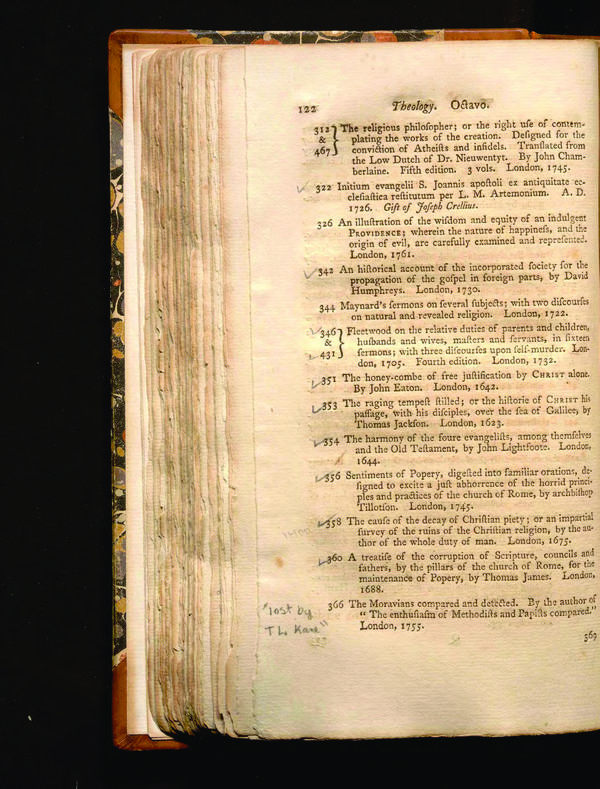 122 Theology. Octavo.
312 } The religious philosopher; or the right uſe of contem-
& plating the works of the creation. Deſigned for the
467 } conviction of Atheiſts and infidels. Tranſlated from
the Low Dutch of Dr. Nieuwentyt. By John Cham-
berlaine. Fifth edition. 3 vols. London, 1745.
322 Initium evangelii S. Joannis apoſtoli ex antiquitate ec-
cleſiaſtica reſtitutum per L. M. Artemonium. A. D.
1726. Gift of Joſeph Crellius.
326 An illuſtration of the wiſdom and equity of an indulgent
PROVIDENCE; wherein the nature of happineſs, and the
origin of evil, are carefully examined and repreſented.
London, 1761.
342 An hiſtorical account of the incorporated ſociety for the
propagation of the goſpel in foreign parts, by David
Humphreys. London, 1730.
344 Maynard's ſermons on ſeveral ſubjects; with two diſcourſes
on natural and revealed religion. London, 1722.
346 } Fleetwood on the relative duties of parents and children,
& huſbands and wives, maſters and ſervants, in ſixteen
431 } ſermons; with three diſcourſes upon ſelf-murder. Lon-
don, 1705. Fourth edition. London, 1732.
351 The honey-combe of free juſtification by CHRIST alone.
By John Eaton. London, 1642.
353 The raging tempeſt ſtilled; or the hiſtorie of CHRIST his
paſſage, with his diſciples, over the ſea of Galilee, by
Thomas Jackſon. London, 1623.
354 The harmony of the foure evangeliſts, among themſelves
and the Old Teſtament, by John Lightfoote. London,
1644.
356 Sentiments of Popery, digeſted into familiar orations, de-
ſigned to excite a juſt abhorrence of the horrid princi-
ples and practices of the church of Rome, by archbiſhop
Tillotſon. London, 1745.
358 The cauſe of the decay of Chriſtian piety; or an impartial
ſurvey of the ruins of the Chriſtian religion, by the au-
thor of the whole duty of man. London, 1675.
360 A treatiſe of the corruption of Scripture, councils and
fathers, by the pillars of the church of Rome, for the
maintenance of Popery, by Thomas James. London,
1688.
366 The Moravians compared and detected. By the author of
“ The enthuſiaſm of Methodiſts and Papiſts compared.”
London, 1755.
"lost by
T L. Kane"
369